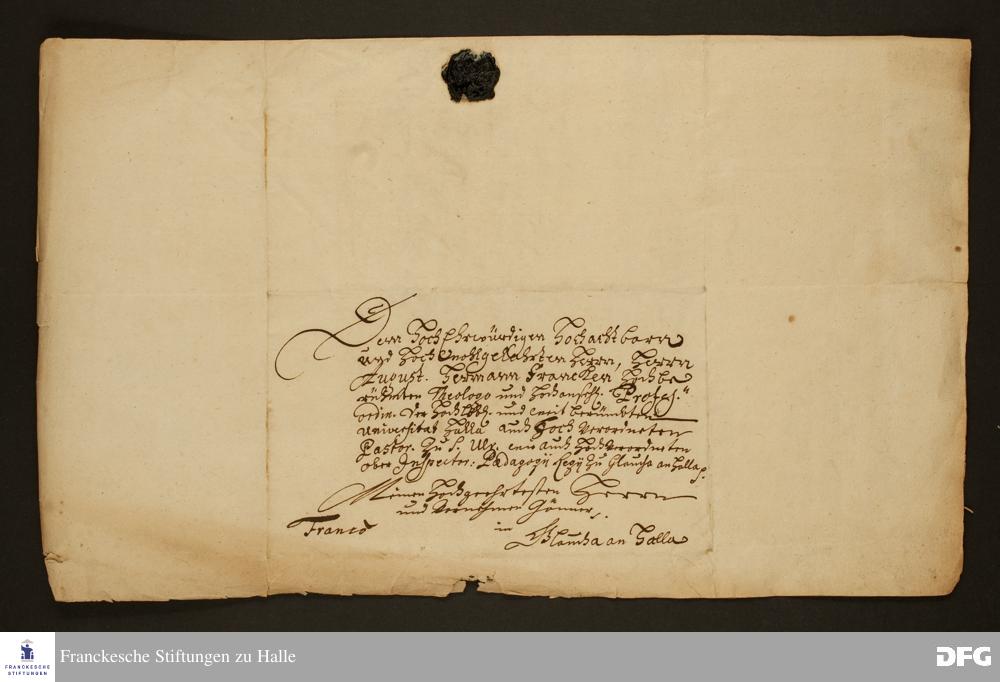 Dem HochEhrwürdigen Hochachtbarn
und HochWohlgelahrten Herrn, Herrn
August. Hermann Francken Hochbe
rühmten Theologo und Hochansehl. Profes:
ordin. der Hochlöbl. und weit berühmten
Universitat Halla auch Hoch verordneten
Pastor. zu S. Ulr. wie auch Hochverordneten
ober Inspector: Pædagogij Regij zu Glaucha an Halla
Meinen Hochgeehrtesten Herrn
und Vornehmen Gönner
Franco in
Glaucha an Halla
FRANCKESCHE
STIFTUNGEN
Franckesche Stiftungen zu Halle
DFG